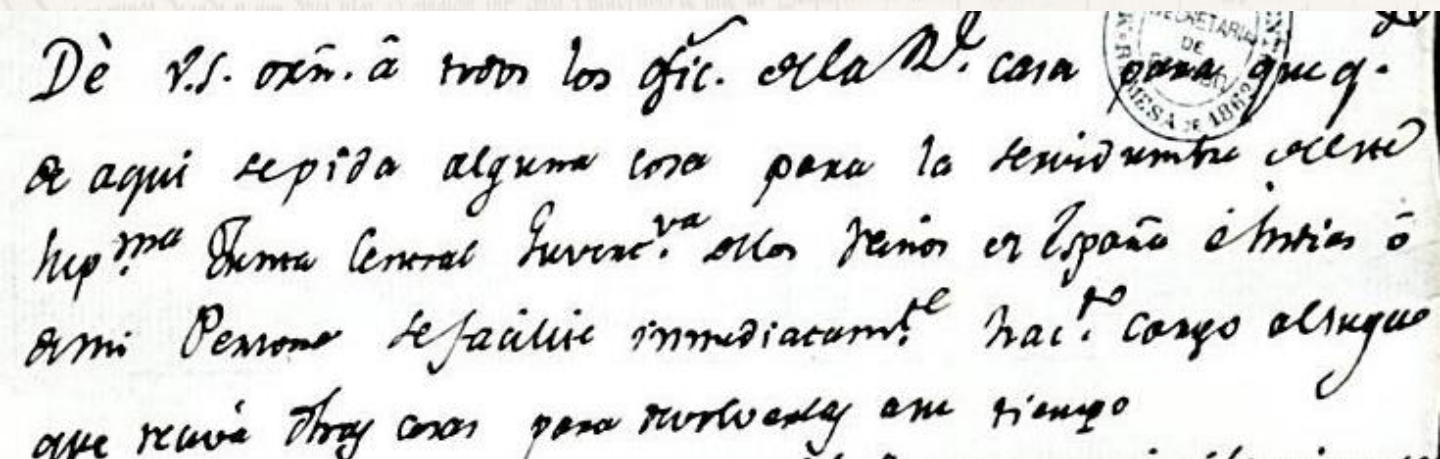 Dè V.S. orñ. â todos los ofic. dela Rl. casa para que q.
de aqui sepida alguna cosa para la servidumbre deesta
Sup.ma Junta Central Guvern.va delos Reinos de España è Indias ô
demi Persona se facilite inmediatam.te hac.do cargo al sugeto
que reciva dhas cosas para devolverlas asu tiempo
SECRETARIA
DE
REMESA DE 1862